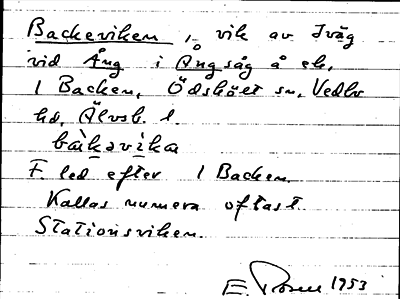 Backeviken, vik av Iväg
vid Ång i Ångsåg å ek,
1 Backen, Ödskölt sn, Vedbo
hd, Älvsb. l.
bàkəvìka
F. led efter 1 Backen.
Kallas numera oftast
Stationsviken.
E. 1953